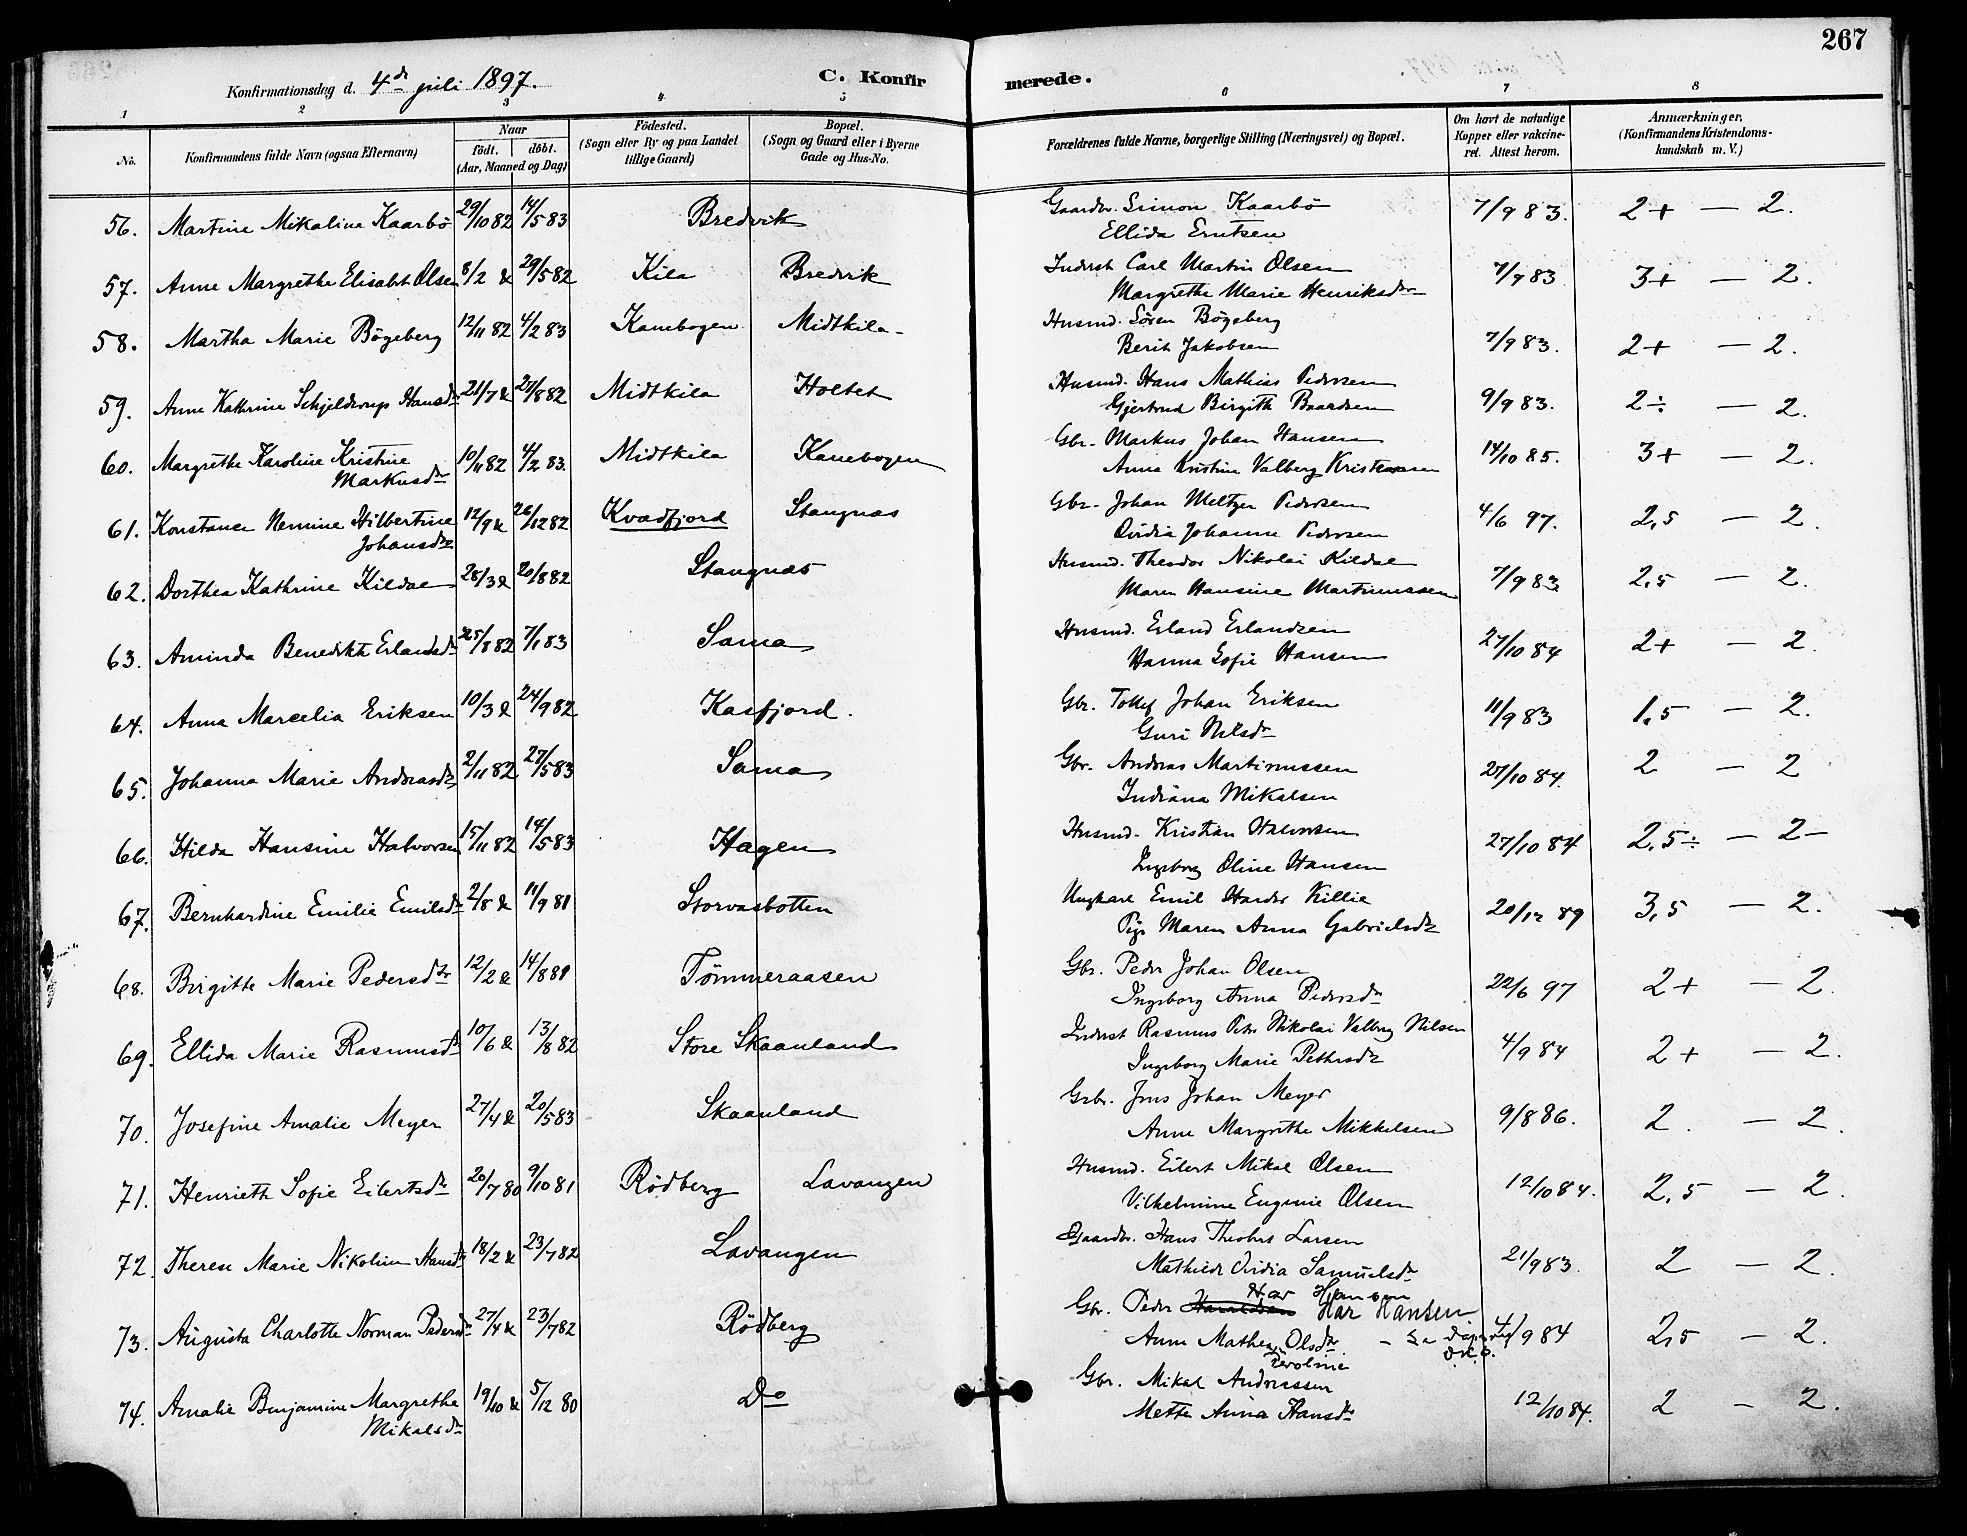 267
Konfirmationsdag d. 4de juli 1897. C. Konfirmerede.
1 2 3 4 5 6 7 8
No. Konfirmandens fulde Navn (ogsaa Efternavn) Naar født. døbt. (Aar, Maaned og Dag) Födested. (Sogn eller By og paa Landet tillige Gaard) Bopæl. (Sogn og Gaard eller i Byerne Gade og Hus-No. Forældrenes fulde Navne, borgerlige Stilling (Næringsvei) og Bopæl. Om havt de naturlige Kopper eller vakcineret. Attest herom. Anmærkninger, (Konfirmandens Kristendomskundskab m. V.)
56. Martine Mikaline Kaarbö 29/10 82 14/5 83 Bredvik Gaardbr. Simon Kaarbö 7/9 83. 2+ — 2.
Ellida Erntsen
57. Anne Margrethe Elisabt Olsen 8/2 & 29/5 82 Kila Bredvik Inderst Carl Martin Olsen 7/9 83 3+ — 2.
Margrethe Marie Henriksdtr
58. Martha Marie Bögeberg 12/11 82 4/2 83 Kanebogen Midtkila Husmd. Sören Bögeberg 7/9 83. 2+ — 2.
Berit Jakobsen
59. Anne Kathrine Schjelderup Hansdtr 21/7 & 27/8 82 Midtkila Holtet Husmd. Hans Mathias Pedersen 9/9 83. 2÷ — 2.
Gjertrud Birgith Baardsen
60. Margrethe Karoline Kristine Markusdtr 10/11 82 4/2 83. Midtkila Kanebogen Gbr. Markus Johan Hansen 14/10 85. 3+ — 2.
Anna Kristine Valberg Kristensen
61. Konstance Nemine Hilbertine Johansdtr 12/9 & 26/12 82 Kvædfjord Stangnæs Gbr. Johan Meltzer Pedersen 4/6 97. 2,5 — 2.
Ovidia Johanne Pedersen
62. Dorthea Kathrine Kildal 28/3 & 20/8 82 Stangnæs Husmd. Theodor Nikolai Kildal 7/9 83. 2,5 — 2.
Maren Hansine Martinussen
63. Aminda Benedikte Erlandsdtr 25/8 82 7/1 83 Sama Husmd. Erland Erlandsen 27/10 84 2+ — 2.
Hanna Sofie Hansen
64. Anna Marcelia Eriksen 10/3 & 24/9 82 Kasfjord. Gbr. Tollef Johan Eriksen 11/9 83 1,5 — 2.
Guri Nilsdtr
65. Johanna Marie Andreasdtr 2/11 82 27/5 83 Sama Gbr. Andreas Martinussen 27/10 84. 2 — 2
Indiana Mikalsen
66. Hilda Hansine Halvorsen 15/11 82 14/5 83 Hagen Husmd. Kristian Halvorsen 27/10 84 2,5÷ — 2 -
Ingeborg Oline Hansen
67. Bernhardine Emilie Emilsdtr 2/8 & 11/9 81 Storvasbotten Ungkarl Emil Hander Killie 20/12 89 3,5 — 2.
Pige Maren Anna Gabrielsdtr
68. Birgitte Marie Pedersdtr 12/2 & 14/8 81 Tömmeraasen Gbr. Peder Johan Olsen 22/6 97 2+ — 2.
Ingeborg Anna Pedersdtr
69. Ellida Marie Rasmusdtr 10/6 & 13/8 82 Store Skaanland Inderst Rasmus Peter Nikolai Valberg Nilsen 4/9 84 2+ — 2.
Ingeborg Marie Pethersdtr
70. Josefine Amalie Meyer 27/4 & 20/5 83 Skaanland Gbr. Jens Johan Meyer 9/8 86. 2. — 2.
Anne Margrethe Mikkelsen
71. Henrieth Sofie Eilertsdtr 20/7 80 9/10 81 Rödberg Lavangen Husmd. Eilert Mikal Olsen 12/10 84. 2,5 — 2.
Vilhelmine Eugenie Olsen
72. Therese Marie Nikoline Hansdtr 18/2 & 23/7 82 Lavangen Gaardbr. Hans Theobert Larsen 21/9 83. 2 — 2.
Mathilde Ovidia Samuelsdtr
73. Augusta Charlotte Norman Pedersdtr 27/4 & 23/7 82 Rödberg Gbr. Peder Har Hansen Har Hansen 4/9 84 2,5 — 2.
Anne Mathea Olsdtr
Peroline
74. Amalie Benjamine Margrethe Mikalsdtr 19/10 & 5/12 80 Do Gbr. Mikal Andreassen 12/10 84. 2 — 2.
Mette Anna Hansdtr